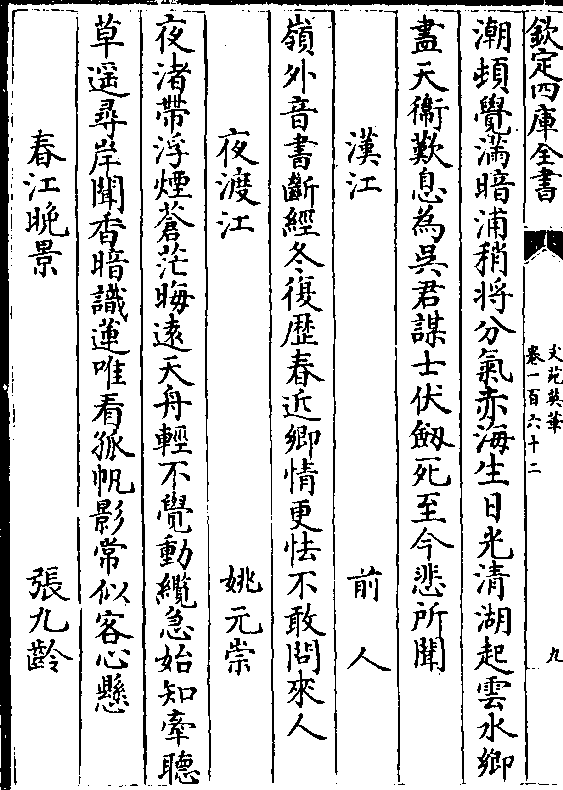 欽定四庫全書
文苑英華
卷一百六十二
九
潮頓覺滿暗浦稍將分氣赤海生日光清湖起雲水鄉
盡天衞歎息為吳君謀士伏劒死至今悲所聞
漢江 前人
嶺外音書斷經冬復歴春近鄉情更怯不敢問來人
夜渡江 姚元崇
夜渚帶浮煙蒼茫晦逺天舟輕不覺動纜急始知牽聽
草遥尋岸聞香暗識蓮唯看孤帆影常似客心懸
春江晚景 張九齡